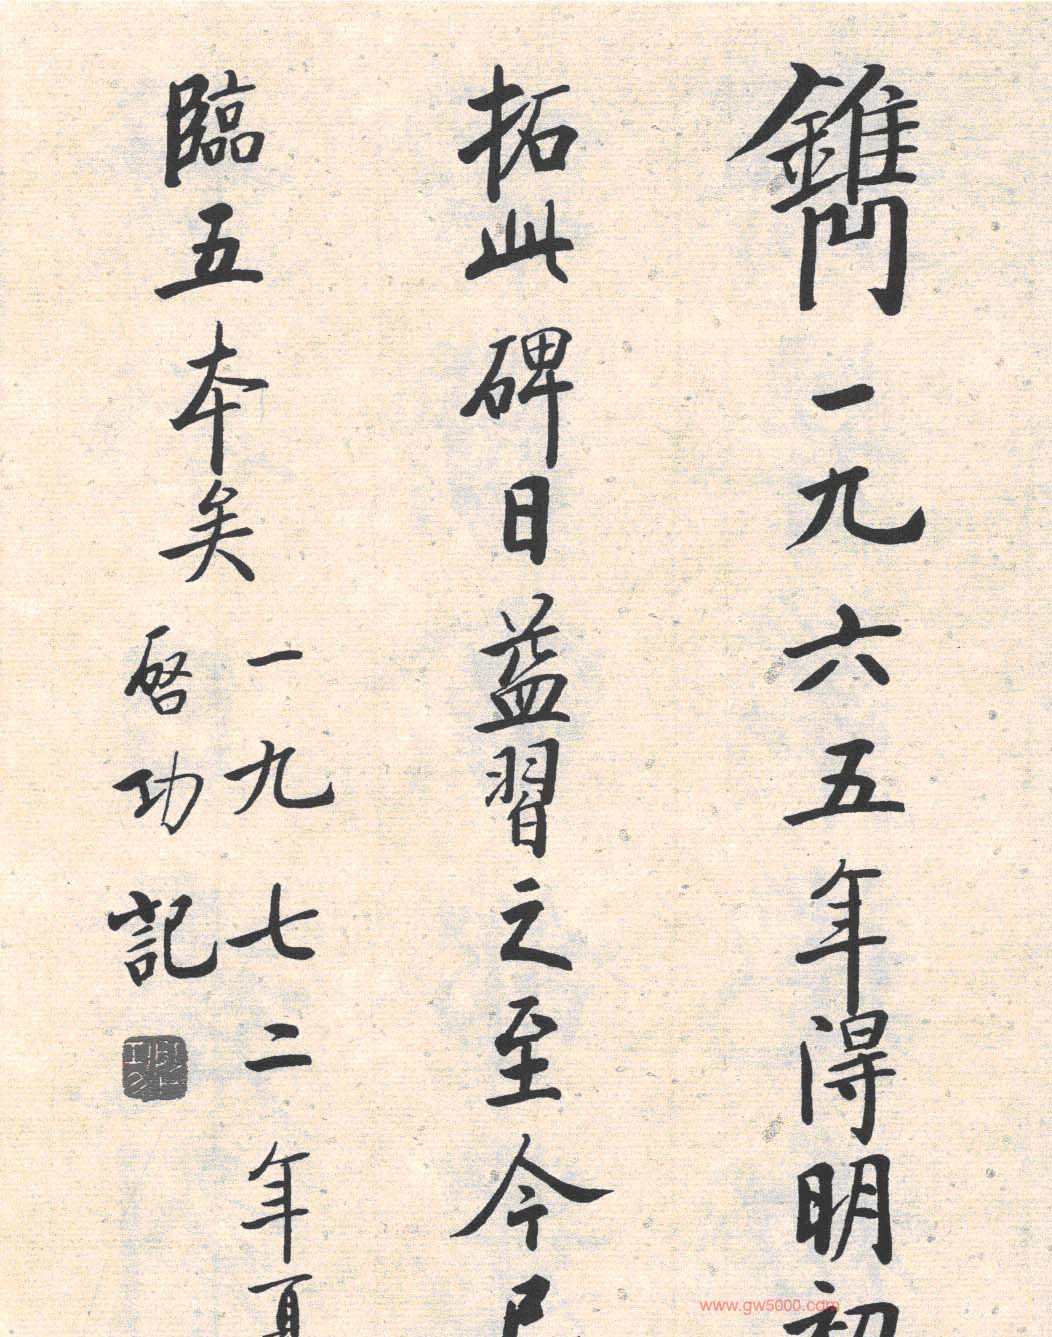 鐫
一九六五年得明初
拓此碑日益習之至今已
臨五本矣
一九七二年夏
啓功記
www.gw5000.com